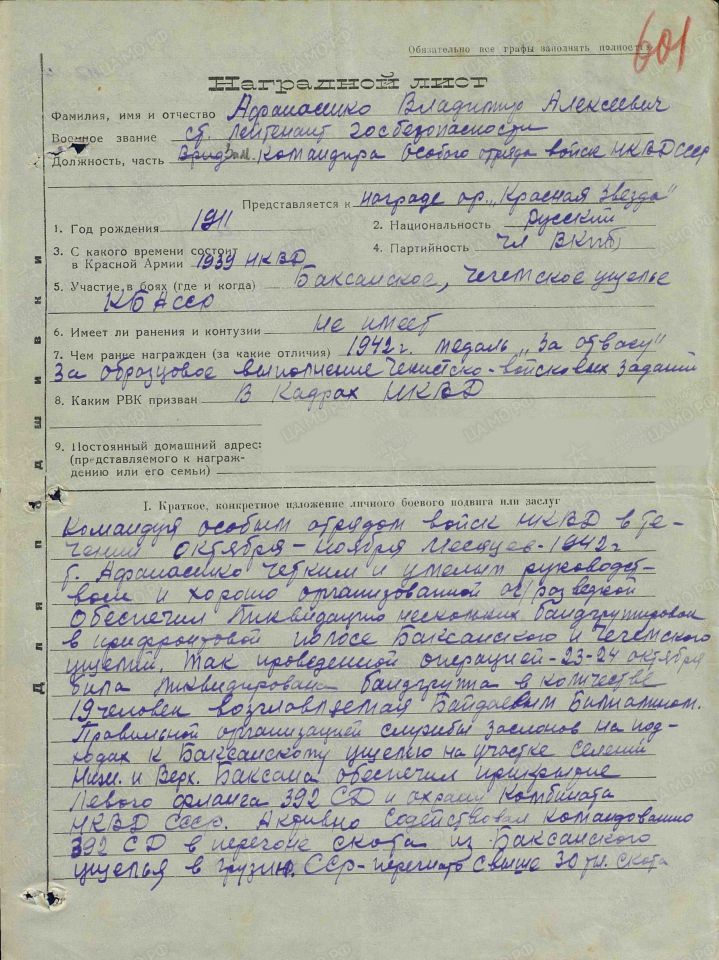 601
Обязательно все графы заполнять полностью
Наградной лист
Фамилия, имя и отчество Афанасенко Владимир Алексеевич
Военное звание ст. лейтенант госбезопасности
Должность, часть Врид зам. командира особого отряда войск НКВД СССР
Представляется к награде ор. „Красная Звезда"
1. Год рождения 1911 2. Национальность русский
3. С какого времени состоит
в Красной Армии 1939 НКВД 4. Партийность чл ВКПб
5. Участие в боях (где и когда) Баксанское, Чегемское ущелье
КБАССР
6. Имеет ли ранения и контузии не имеет
7. Чем ранее награжден (за какие отличия) 1942 г. медаль „За отвагу"
За образцовое выполнение чекистско-войсковых заданий
8. Каким РВК призван В Кадрах НКВД
9. Постоянный домашний адрес:
(представляемого к награж-
дению или его семьи)
I. Краткое, конкретное изложение личного боевого подвига или заслуг
Командуя особым отрядом войск НКВД в те-
чении октября – ноября месяцев – 1942 г
т. Афанасенко четким и умелым руководст-
вом и хорошо организованной аг/разведкой
обеспечил ликвидацию нескольких бандгруппировок
в прифронтовой полосе Баксанского и Чегемского
ущелий. Так проведенной операцией – 23-24 октября
была ликвидирована бандгруппа в количестве
19 человек возглавляемая Байдаевым
Правильной организацией службы заслонов на под-
ходах к Баксанскому ущелью на участке селений
Нижн. и Верх. Баксана обеспечил прикрытие
левого фланга 392 СД и охрану комбината
НКВД СССР. Активно содействовал командованию
392 СД в перегоне скота из Баксанского
ущелья в Грузин. ССР – перегнато свыше 30 т. скота
Для подшивки